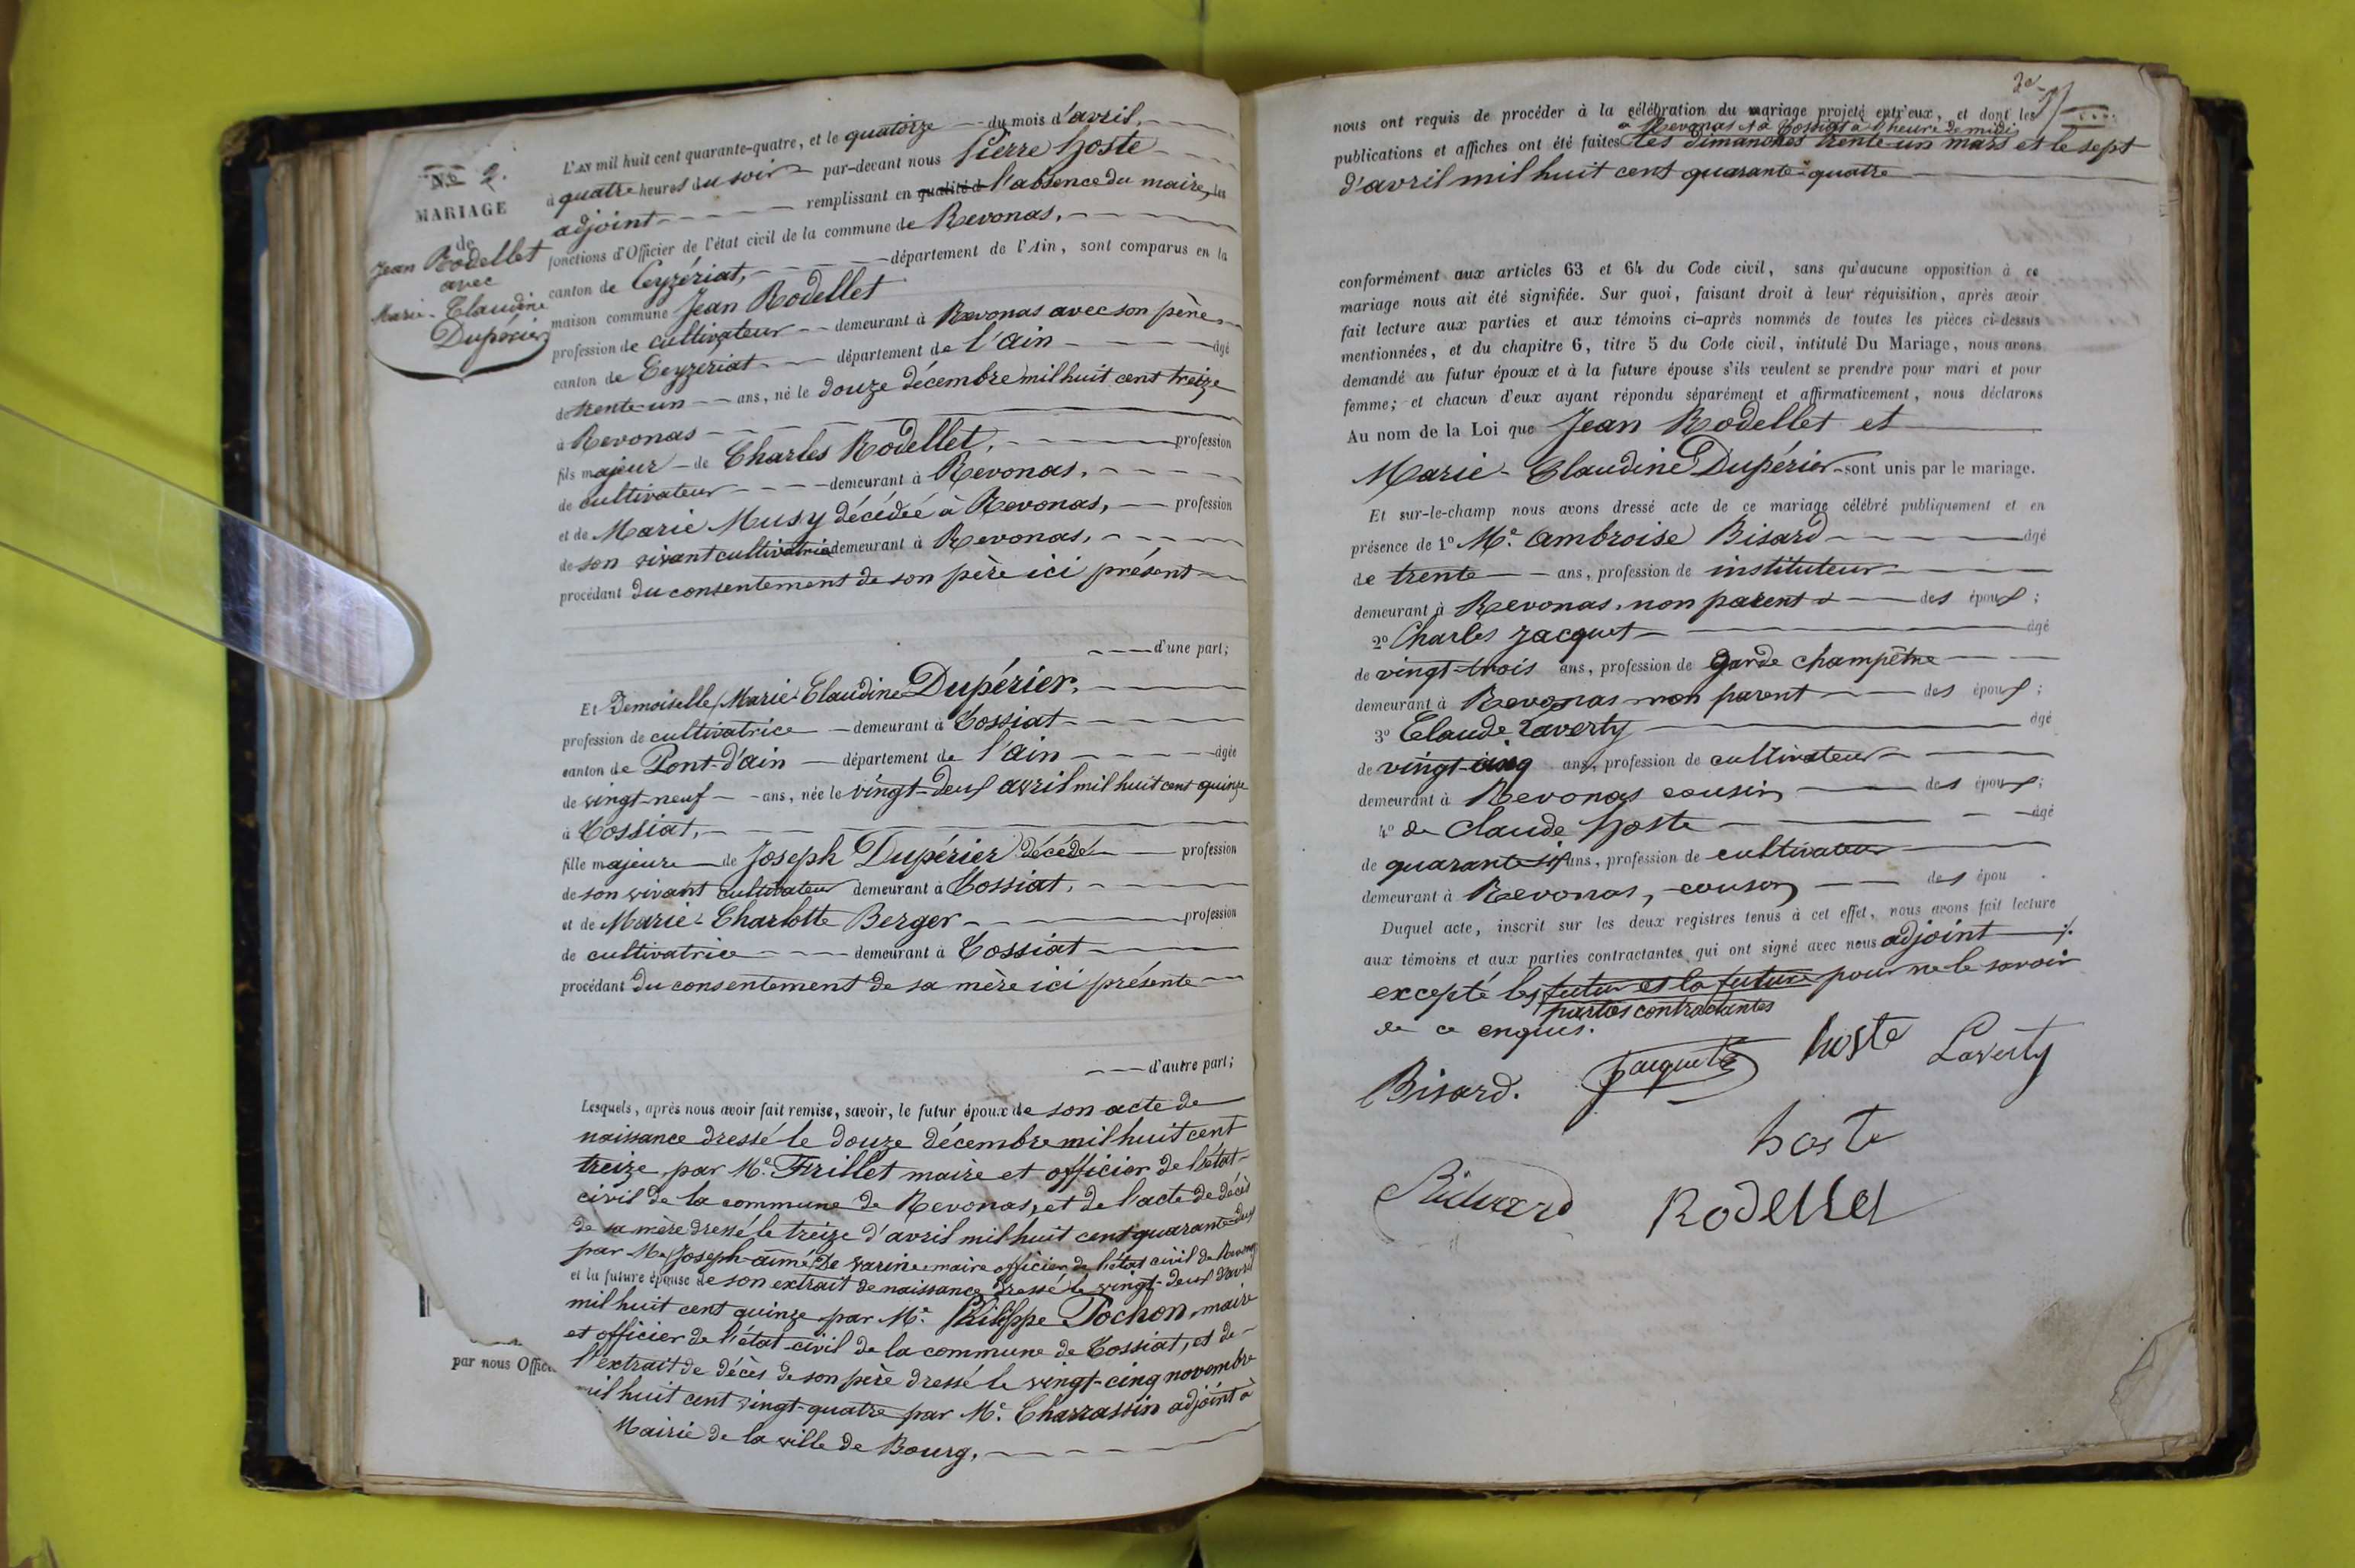 N.º 2.
MARIAGE
de
Jean Rodellet
avec
Marie-Claudine
Dupérier
L'AN mil huit cent quarante-quatre, et le quatorze du mois d'avril,
à quatre heures du soir par-devant nous Pierre hoste
adjoint remplissant en qualité de l'absence du maire, les
fonctions d'Officier de l'état civil de la commune de Revonas,
canton de Ceyzériat, département de l'Ain, sont comparus en la
maison commune Jean Rodellet
profession de cultivateur demeurant à Revonas avec son père
canton de Ceyzeriat département de l'ain âgé
de trente-un ans, né le douze décembre mil huit cent treize
à Revonas
fils majeur de Charles Rodellet, profession
de cultivateur demeurant à Revonas,
et de Marie Musy décédée à Revonas, profession
de son vivant cultivatrice demeurant à Revonas,
procédant du consentement de son père ici présent
d'une part;
Et Demoiselle Marie-Claudine Dupérier,
profession de cultivatrice demeurant à Tossiat
canton de Pont-d'ain département de l'ain âgée
de vingt-neuf ans, née le vingt-deux avril mil huit cent quinze
à Tossiat,
fille majeure de Joseph Dupérier décédé profession
de son vivant cultivateur demeurant à Tossiat,
et de Marie-Charlotte Berger profession
de cultivatrice demeurant à Tossiat
procédant du consentement de sa mère ici présente
d'autre part;
Lesquels, après nous avoir fait remise, savoir, le futur époux de son acte de
naissance dressé le douze décembre mil huit cent
treize par Me. Frillet maire et officier de l'état-
civil de la commune de Revonas, et de l'acte de décès
de sa mère dressé le treize d'avril mil huit cent quarante-deux
par Me Joseph-aimé De varine maire officier de l'état civil de Revonas
et la future épouse de son extrait de naissance dressé le vingt-deux d'avril
mil huit cent quinze par Me. Philippe Pochon, maire
et officier de l'état-civil de la commune de Tossiat, et de
l'extrait de décès de son père dressé le vingt-cinq novembre
mil huit cent vingt-quatre par Me. Charrassin adjoint à
Mairie de la ville de Bourg,
par nous Offic
nous ont requis de procéder à la célébration du mariage projeté entr'eux, et dont les
à Revonas et à Tossiat à l'heure de midi
publications et affiches ont été faites les dimanches trente-un mars et le sept
d'avril mil huit cent quarante-quatre
conformément aux articles 63 et 64 du Code civil, sans qu'aucune opposition à ce
mariage nous ait été signifiée. Sur quoi, faisant droit à leur réquisition, après avoir
fait lecture aux parties et aux témoins ci-après nommés de toutes les pièces ci-dessus
mentionnées, et du chapitre 6, titre 5 du Code civil, intitulé Du Mariage, nous avons
demandé au futur époux et à la future épouse s'ils veulent se prendre pour mari et pour
femme; et chacun d'eux ayant répondu séparément et affirmativement, nous déclarons
Au nom de la Loi que Jean Rodellet et
Marie-Claudine Dupérier sont unis par le mariage.
Et sur-le-champ nous avons dressé acte de ce mariage célébré publiquement et en
présence de 1º Me. ambroise Bisard âgé
de trente ans, profession de instituteur
demeurant à Revonas, non parent des époux;
2º Charles jacquet âgé
de vingt-trois ans, profession de garde champêtre
demeurant à Revonas non parent des époux;
3º Claude Laverty âgé
de vingt-cinq ans, profession de cultivateur
demeurant à Revonas cousin des époux;
4º de Claude hoste âgé
de quarante-six ans, profession de cultivateur
demeurant à Revonas, cousin des épou
Duquel acte, inscrit sur les deux registres tenus à cet effet, nous avons fait lecture
aux témoins et aux parties contractantes qui ont signé avec nous adjoint
excepté les futur et la future pour ne le savoir
parties contractantes
de ce enquis.
Bisard. Jacquet hoste Laverty
hoste
Rodellet